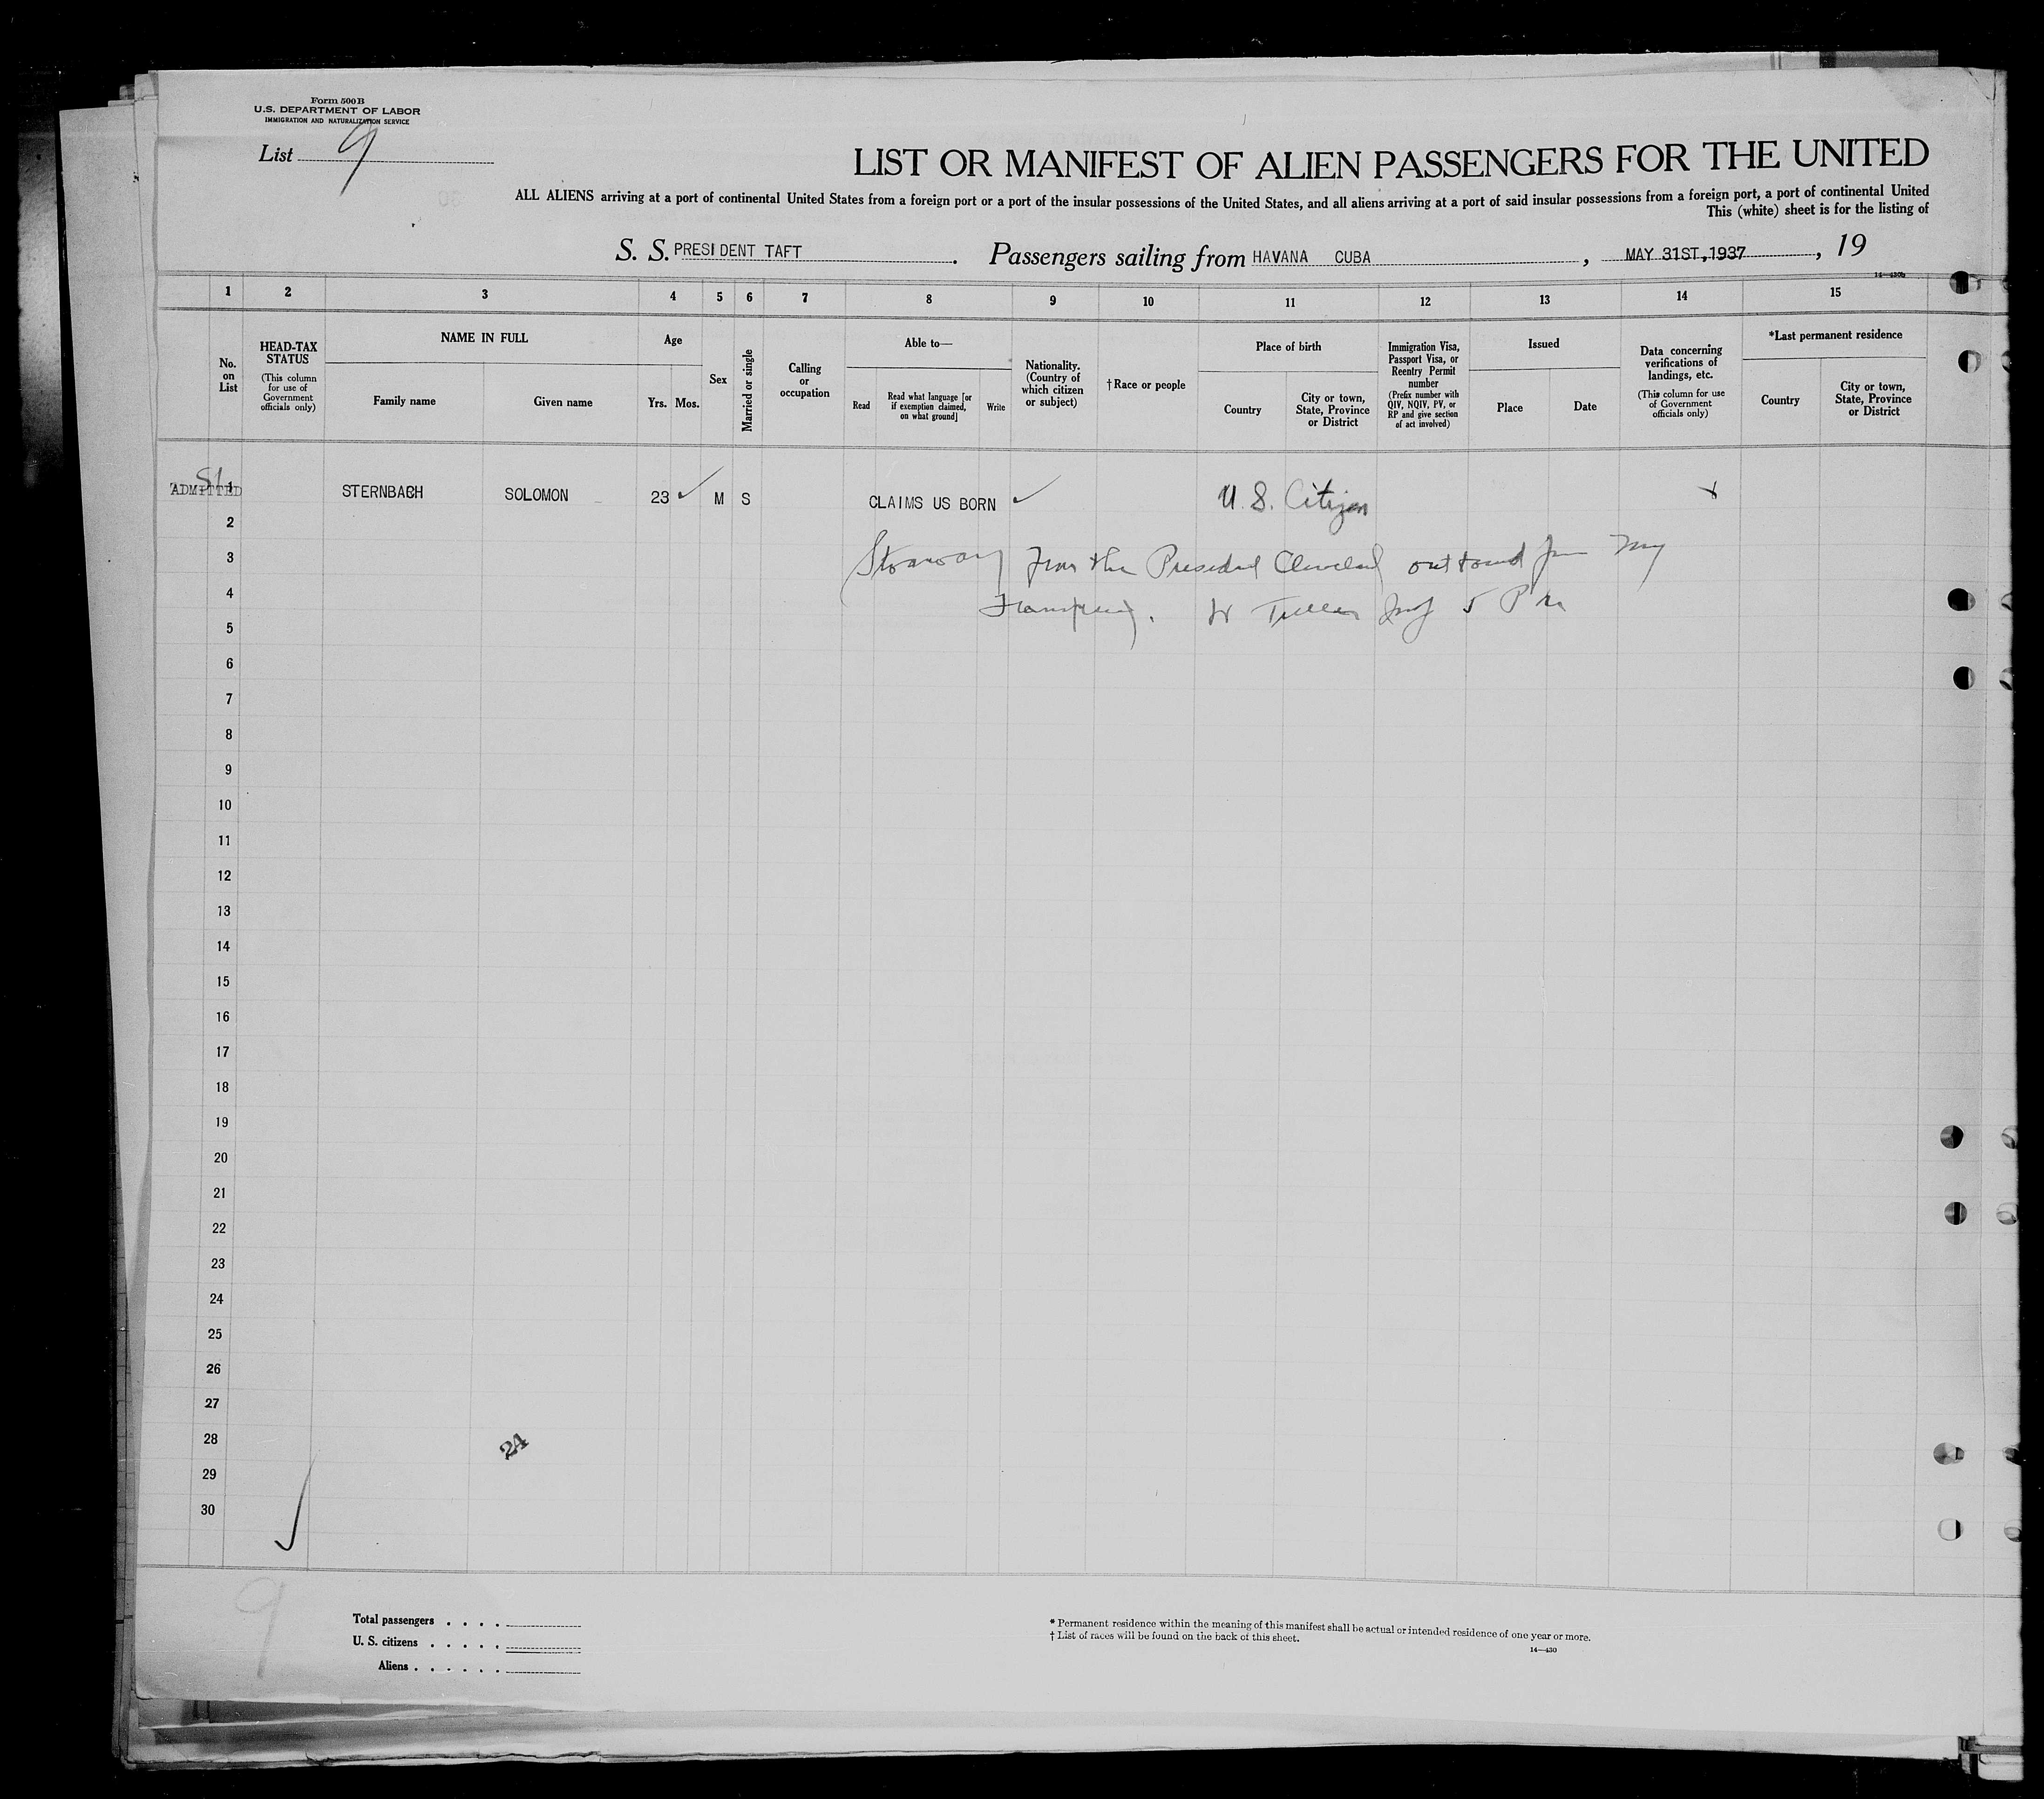 Form 500B
U.S. DEPARTMENT OF LABOR
IMMIGRATION AND NATURALIZATION SERVICE
List 9
LIST OR MANIFEST OF ALIEN PASSENGERS FOR THE UNITED
ALL ALIENS arriving at a port of continental United States from a foreign port or a port of the insular possessions of the United States, and all aliens arriving at a port of said insular possessions from a foreign port, a port of continental United
This (white) sheet is for the listing of
S. S. PRESIDENT TAFT. Passengers sailing from HAVANA CUBA, MAY 31ST,1937, 19
14—430b
1 2 3 4 5 6 7 8 9 10 11 12 13 14 15
No. on List
HEAD-TAX STATUS
(This column for use of Government officials only)
NAME IN FULL
Family name
Given name
Age
Yrs. Mos.
Sex
Married or single
Calling or occupation
Able to—
Read
Read what language [or if exemption claimed, on what ground]
Write
Nationality. (Country of which citizen or subject)
†Race or people
Place of birth
Country
City or town, State, Province or District
Immigration Visa, Passport Visa, or Reentry Permit number
(Prefix number with QIV, NQIV, PV, or RP and give section of act involved)
Issued
Place
Date
Data concerning verifications of landings, etc.
(This column for use of Government officials only)
*Last permanent residence
Country
City or town, State, Province or District
ADMITTED 1 STERNBACH SOLOMON 23 ✓ M S CLAIMS US BORN ✓ U.S. Citizen x
2
3 Stowaway from the President Cleveland outbound from
4
5
6
7
8
9
10
11
12
13
14
15
16
17
18
19
20
21
22
23
24
25
26
27
28 24
29
30
9
Total passengers . . . .
U. S. citizens . . . . .
Aliens . . . . . .
* Permanent residence within the meaning of this manifest shall be actual or intended residence of one year or more.
† List of races will be found on the back of this sheet.
14—430